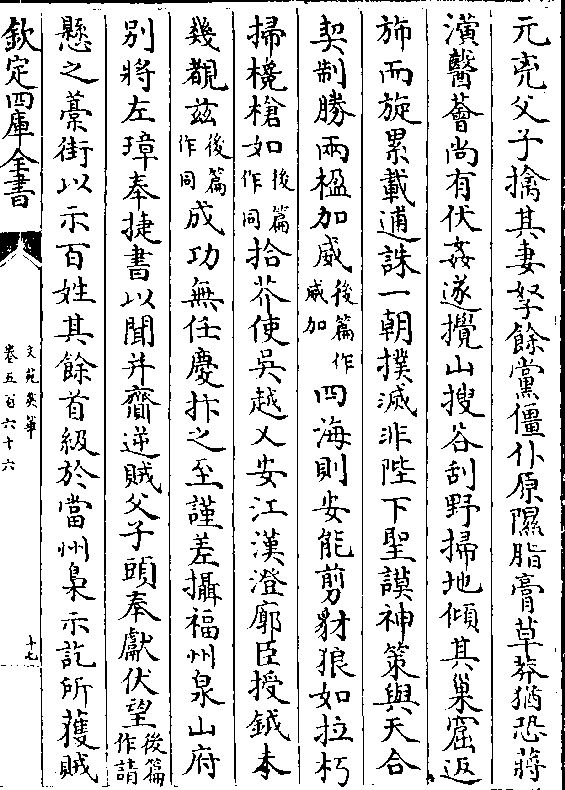 元亮父子擒其妻孥餘黨僵仆原隰脂膏草莽猶恐蔣
潢翳薈尚有伏姦遂攪山搜谷刮野掃地傾其巢窟返
斾而旋累載逋誅一朝撲滅非陛下聖謨神策與天合
契制勝兩楹加威後篇作威加四海則安能剪豺狼如拉朽
掃欃槍如後篇作同拾芥使吳越乂安江漢澄廓臣授鉞未
幾覩兹後篇作同成功無任慶抃之至謹差攝福州泉山府
别將左璋奉捷書以聞并齎逆賊父子頭奉獻伏望後篇作請
懸之藁街以示百姓其餘首級於當州梟示訖所獲賊
欽定四庫全書
文苑英華
卷五百六十六
十七